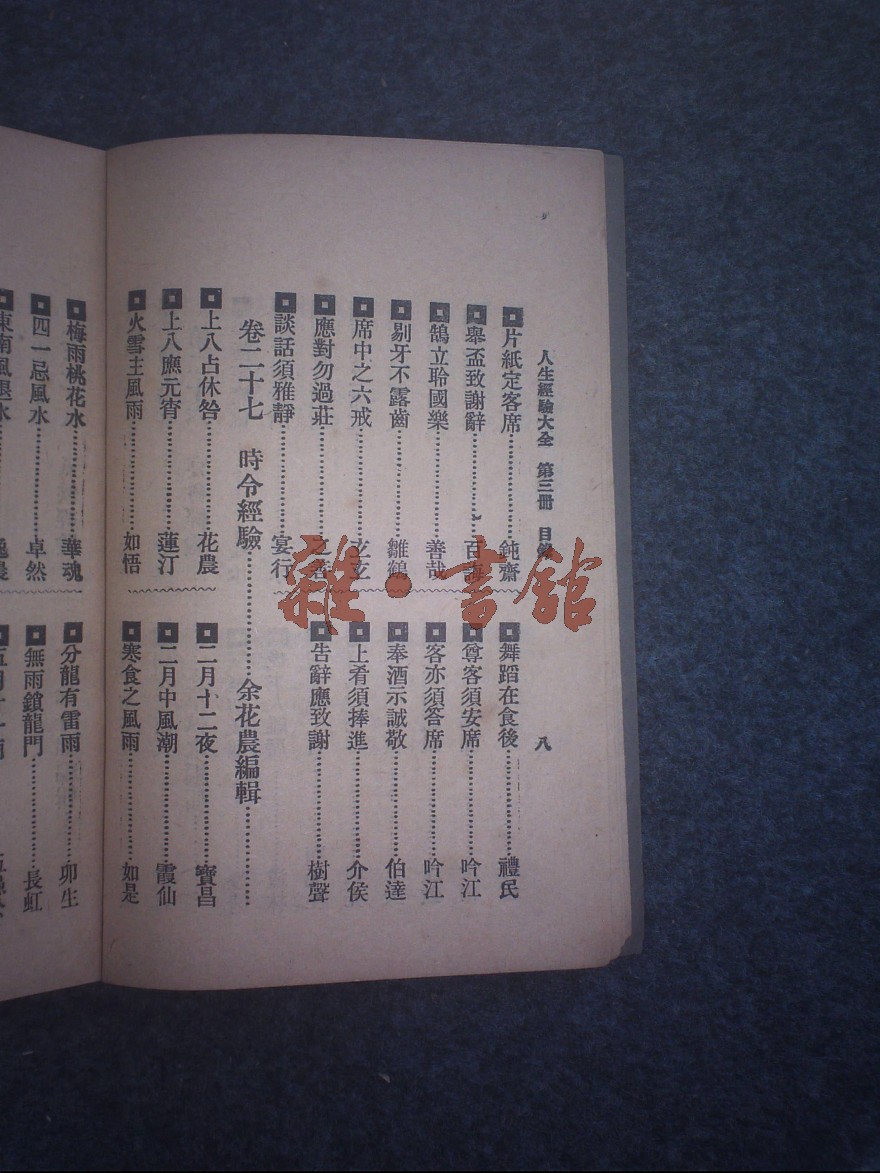 人生經驗大全 第三册 目錄 八
片紙定客席……鈍齋
舞蹈在食後……禮民
舉盃致謝辭……百誨
尊客須安席……吟江
鵠立聆國樂……善哉
客亦須答席……吟江
剔牙不露齒……雛鶴
奉酒示誠敬……伯達
席中之六戒……玄玄
上肴須捧進……介侯
應對勿過莊……之善
告辭應致謝……樹聲
談話須雅靜……宴行
卷二十七 時令經驗……余花農編輯……
上八占休咎……花農
二月十二夜……寶昌
上八應元宵……蓮汀
二月中風潮……霞仙
火雪主風雨……如悟
寒食之風雨……如是
梅雨桃花水……華魂
分龍有雷雨……卯生
四一忌風水……卓然
無雨鎖龍門……長虹
東南風
雜·書館